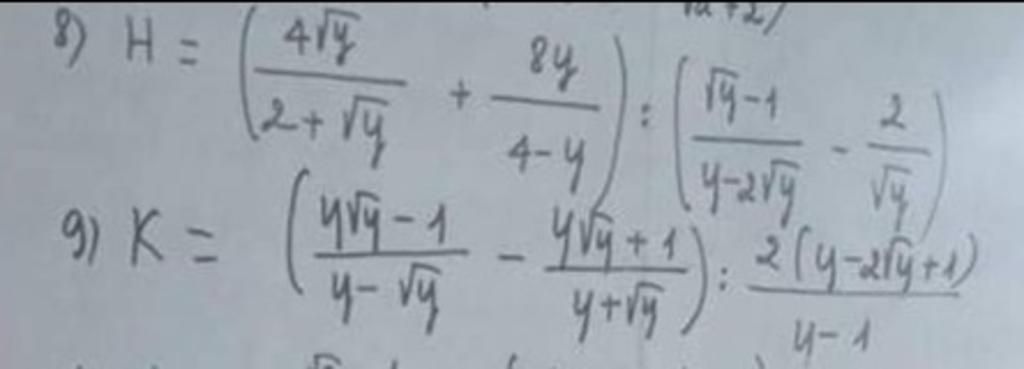 √u+2)
8) H = (4√y / 2+√y + 8y / 4-y) : (√y-1 / y-2√y - 2 / √y)
9) K = (y√y-1 / y-√y - y√y+1 / y+√y) : 2(y-2√y+1) / y-1